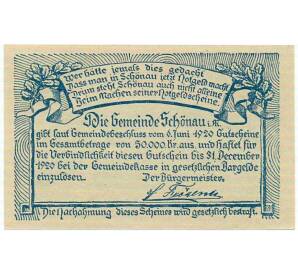 Wer hätte jemals dies gedacht
Dass man in Schönau jetzt Notgeld macht
Drum steht Schönau auch nicht alleine
Beim Machen seiner Notgeldscheine.
Die Gemeinde Schönau
gibt laut Gemeindebeschluss vom 6. Juni 1920 Gutscheine
im Gesamtbetrage von 50.000 Kr. aus, und haftet für
die Verbindlichkeit dieses Gutschein bis 31. Dezember
1920 bei der Gemeindekasse in gesetzlich Bargelde
einzulösen.
Der Bürgermeister:
Die Nachahmung dieses Scheines wird gesetzlich bestraft.